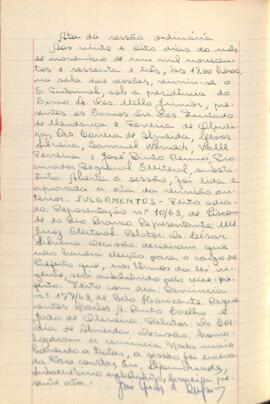 Ata da sessão ordinária
Aos vinte e oito dias do mês
de novembro de um mil novecen-
tos e sessenta e três, às 17,00 horas,
na sala das sessões, reuniu-se o
E. Tribunal, sob a presidência do
Exmo. Sr. Des. Mello Junior, pre-
sentes os Exmos. Srs. Des. Furtado
de Mendonça e Ferreira de Olivei-
ra, Drs. Corrêa de Almeida, Cesar
Silveira, Samuel Werneck, Valle
Ferreira e José Pinto Renno, Pro-
curador Regional Eleitoral, substi-
tuto. Aberta a sessão, foi lida e
aprovada a ata da reunião an-
terior. JULGAMENTOS - Feito adia-
do: Representação nº 10/63, de Viscon-
de do Rio Branco. Representante: MM.
Juiz Eleitoral. Relator: Dr. Cesar
Silveira. Decisão: decidiram que
não haverá eleição para o cargo de
Prefeito que, nos termos da lei vi-
gente, será substituído pelo vice-pre-
feito. Feito com dia: Denúncia
nº 177/63, de Belo Horizonte. Reque-
rentes: Carlos A. Pinto Coelho e
João de Oliveira. Relator: Dr. Cor-
rêa de Almeida. Decisão: homo-
logaram a renúncia. Nada mais
havendo a tratar, a sessão foi encerra-
da. Para constar, eu,
a pre-
sente ata.